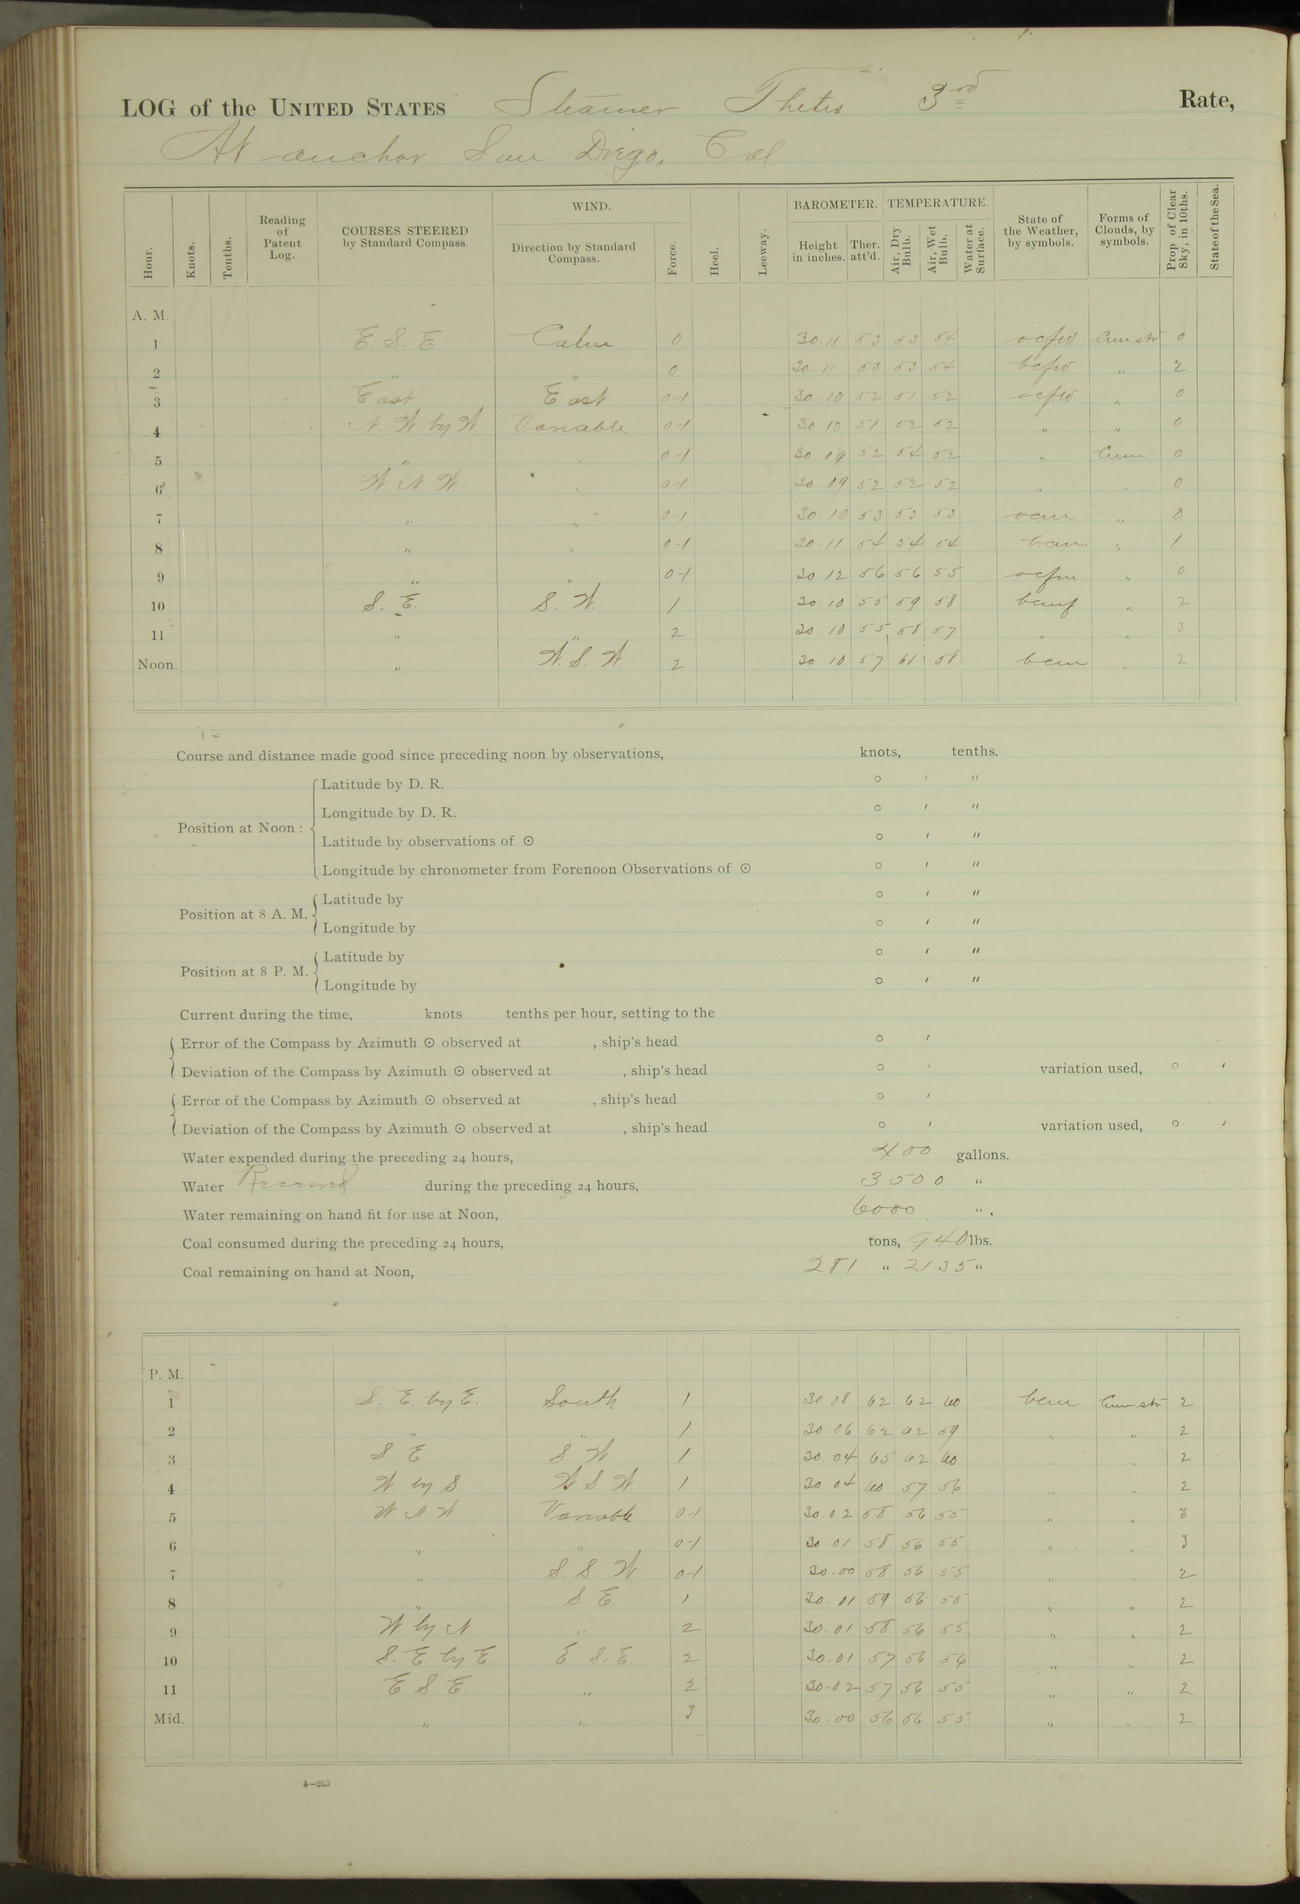 LOG of the UNITED STATES Steamer Thetis 3rd Rate,
At anchor San Diego, Cal.
Hour. Knots. Tenths. Reading of Patent Log. COURSES STEERED by Standard Compass. WIND. Direction by Standard Compass. Force. Heel. Leeway. BAROMETER. Height in inches. Ther. att'd. TEMPERATURE. Air, Dry Bulb. Air, Wet Bulb. Water at Surface. State of the Weather, by symbols. Forms of Clouds, by symbols. Prop of Clear Sky, in 10ths. State of the Sea.
A. M.
1 E. S. E Calm 0 30 11 53 53 54 ocfw Cum str 0
2 " " 0 30.11 53 53 54 bcfw " 2
3 East East 0-1 30.10 52 51 52 ocfw " 0
4 N W by W Variable 0-1 30 10 51 52 52 " " 0
5 " " 0-1 30.09 52 54 52 " Cum 0
6 W N W " 0-1 30.09 52 52 52 " " 0
7 " " 0-1 30.10 53 53 53 ocm " 0
8 " " 0-1 30.11 54 54 54 bcm " 1
9 " " 0-1 30 12 56 56 55 ocfm " 0
10 S. E. S. W. 1 30.10 55 59 58 bcmf " 2
11 " " 2 30.10 55 58 57 " " 3
Noon. " W. S. W 2 30.10 57 61 58 bcm " 2
Course and distance made good since preceding noon by observations, knots, tenths.
Position at Noon :
Latitude by D. R. ° ′ ″
Longitude by D. R. ° ′ ″
Latitude by observations of ⊙ ° ′ ″
Longitude by chronometer from Forenoon Observations of ⊙ ° ′ ″
Position at 8 A. M.
Latitude by ° ′ ″
Longitude by ° ′ ″
Position at 8 P. M.
Latitude by ° ′ ″
Longitude by ° ′ ″
Current during the time, knots tenths per hour, setting to the
Error of the Compass by Azimuth ⊙ observed at , ship's head ° ′
Deviation of the Compass by Azimuth ⊙ observed at , ship's head ° ′ variation used, ° ′
Error of the Compass by Azimuth ⊙ observed at , ship's head ° ′
Deviation of the Compass by Azimuth ⊙ observed at , ship's head ° ′ variation used, ° ′
Water expended during the preceding 24 hours, 400 gallons.
Water Received during the preceding 24 hours, 3500 "
Water remaining on hand fit for use at Noon, 6000 " .
Coal consumed during the preceding 24 hours, tons, 940 lbs.
Coal remaining on hand at Noon, 281 " 2135 "
P. M.
1 S. E. by E. South 1 30 08 62 62 60 bcm Cum str 2
2 " " 1 30.06 62 62 59 " " 2
3 S. E. S W 1 30.04 65 62 60 " 2
4 W by S W S. W 1 30.04 60 57 56 " " 2
5 W N W Variable 0-1 30 02 58 56 55 " " 3
6 " " 0-1 30 01 58 56 55 " " 3
7 " S. S W 0-1 30.00 58 56 55 " " 2
8 " S E. 1 30.01 59 56 55 " " 2
9 W by N " 2 30.01 58 56 55 " " 2
10 S. E. by E. E. S.E. 2 30.01 57 56 56 " " 2
11 E. S. E. " 2 30.02 57 56 55 " " 2
Mid. " " 3 30.00 56 56 55 " " 2
4—265